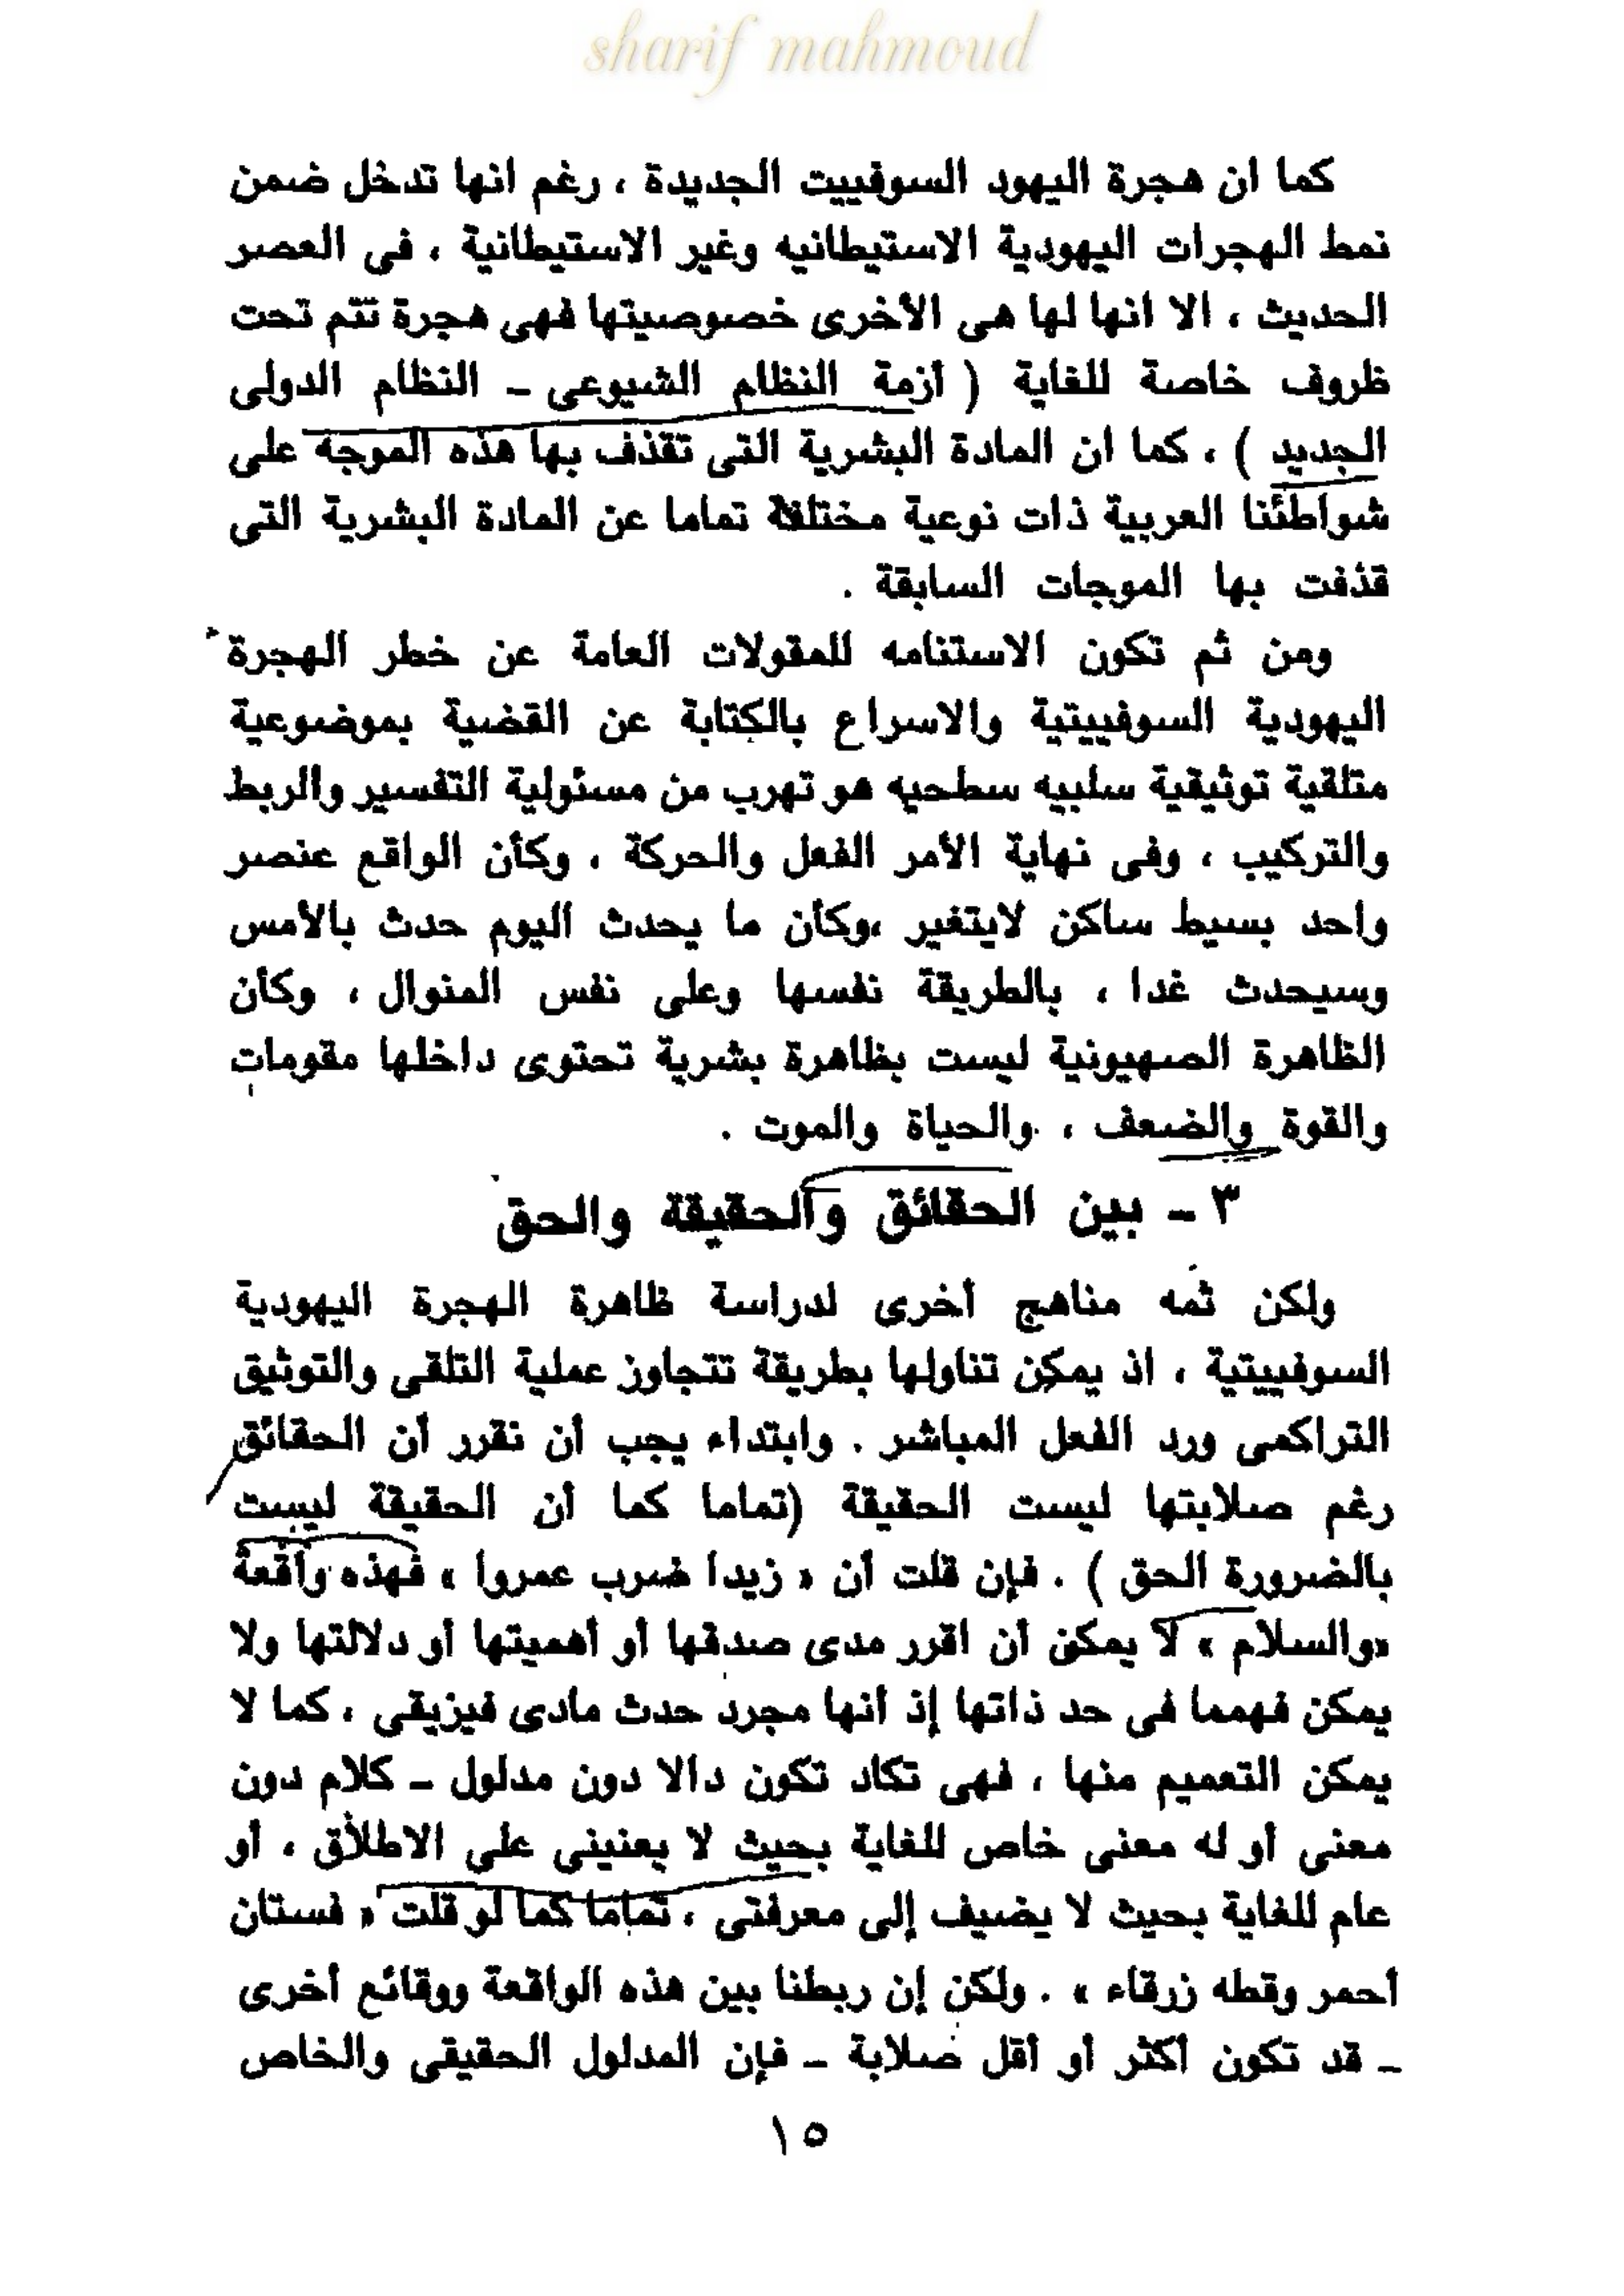 sharif mahmoud
كما ان هجرة اليهود السوفييت الجديدة ، رغم انها تدخل ضمن
نمط الهجرات اليهودية الاستيطانيه وغير الاستيطانية ، فى العصر
الحديث ، الا انها لها هى الأخرى خصوصيتها فهى هجرة تتم تحت
ظروف خاصة للغاية ( أزمة النظام الشيوعى ـ النظام الدولى
الجديد ) ، كما ان المادة البشرية التى تقذف بها هذه الموجه على
شواطئنا العربية ذات نوعية مختلفة تماما عن المادة البشرية التى
قذفت بها الموجات السابقة .
ومن ثم تكون الاستنامه للمقولات العامة عن خطر الهجرة
اليهودية السوفييتية والاسراع بالكتابة عن القضية بموضوعية
متلقية توثيقية سلبيه سطحيه هو تهرب من مسئولية التفسير والربط
والتركيب ، وفى نهاية الأمر الفعل والحركة ، وكأن الواقع عنصر
واحد بسيط ساكن لايتغير ،وكأن ما يحدث اليوم حدث بالأمس
وسيحدث غدا ، بالطريقة نفسها وعلى نفس المنوال ، وكأن
الظاهرة الصهيونية ليست بظاهرة بشرية تحتوى داخلها مقومات
والقوة والضعف ، والحياة والموت .
٣ ـ بين الحقائق والحقيقة والحق
ولكن ثمه مناهج أخرى لدراسة ظاهرة الهجرة اليهودية
السوفييتية ، اذ يمكن تناولها بطريقة تتجاوز عملية التلقى والتوثيق
التراكمى ورد الفعل المباشر . وابتداء يجب أن نقرر أن الحقائق
رغم صلابتها ليست الحقيقة (تماما كما أن الحقيقة ليست
بالضرورة الحق ) . فإن قلت أن « زيدا ضرب عمروا » فهذه واقعة
«والسلام » لا يمكن أن اقرر مدى صدقها أو أهميتها أو دلالتها ولا
يمكن فهمما فى حد ذاتها إذ أنها مجرد حدث مادى فيزيقى ، كما لا
يمكن التعميم منها ، فهى تكاد تكون دالا دون مدلول ـ كلام دون
معنى أو له معنى خاص للغاية بحيث لا يعنينى على الاطلاق ، أو
عام للغاية بحيث لا يضيف إلى معرفتى ، تماما كما لو قلت « فستان
أحمر وقطه زرقاء » . ولكن إن ربطنا بين هذه الواقعة ووقائع أخرى
ـ قد تكون أكثر أو أقل صلابة ـ فإن المدلول الحقيقى والخاص
١٥